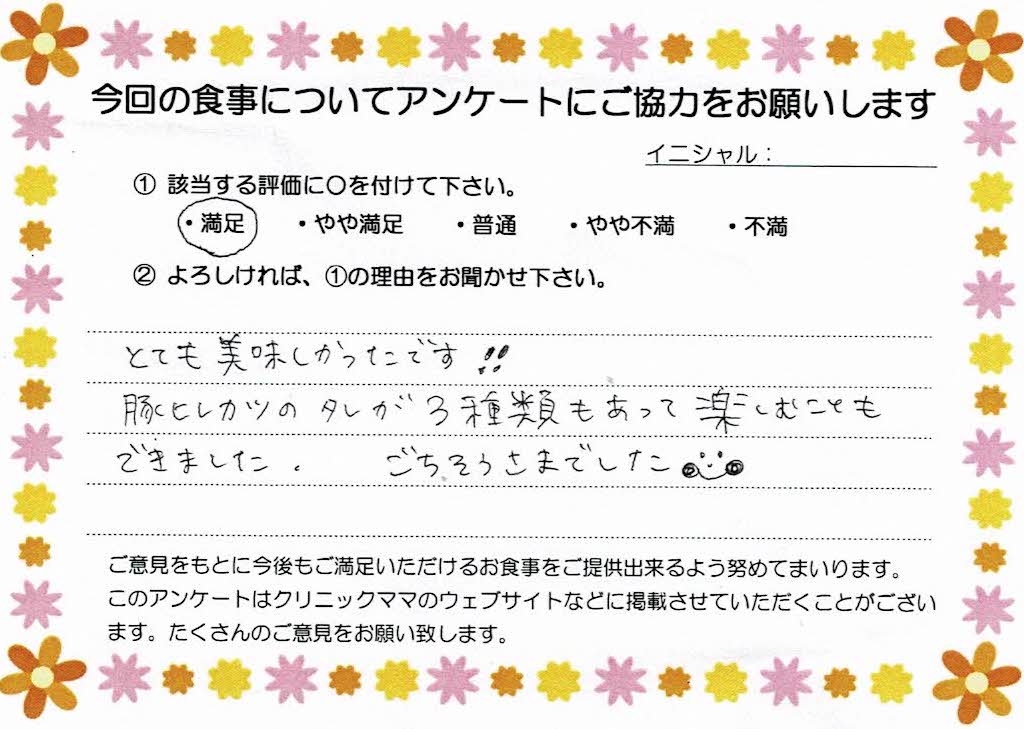 今回の食事についてアンケートにご協力をお願いします
イニシャル：
① 該当する評価に○を付けて下さい。
・満足 ・やや満足 ・普通 ・やや不満 ・不満
② よろしければ、①の理由をお聞かせ下さい。
とても美味しかったです!!
豚ヒレカツのタレが3種類もあって楽しむことも
できました. ごちそうさまでした
ご意見をもとに今後もご満足いただけるお食事をご提供出来るよう努めてまいります。
このアンケートはクリニックママのウェブサイトなどに掲載させていただくことがござい
ます。たくさんのご意見をお願い致します。